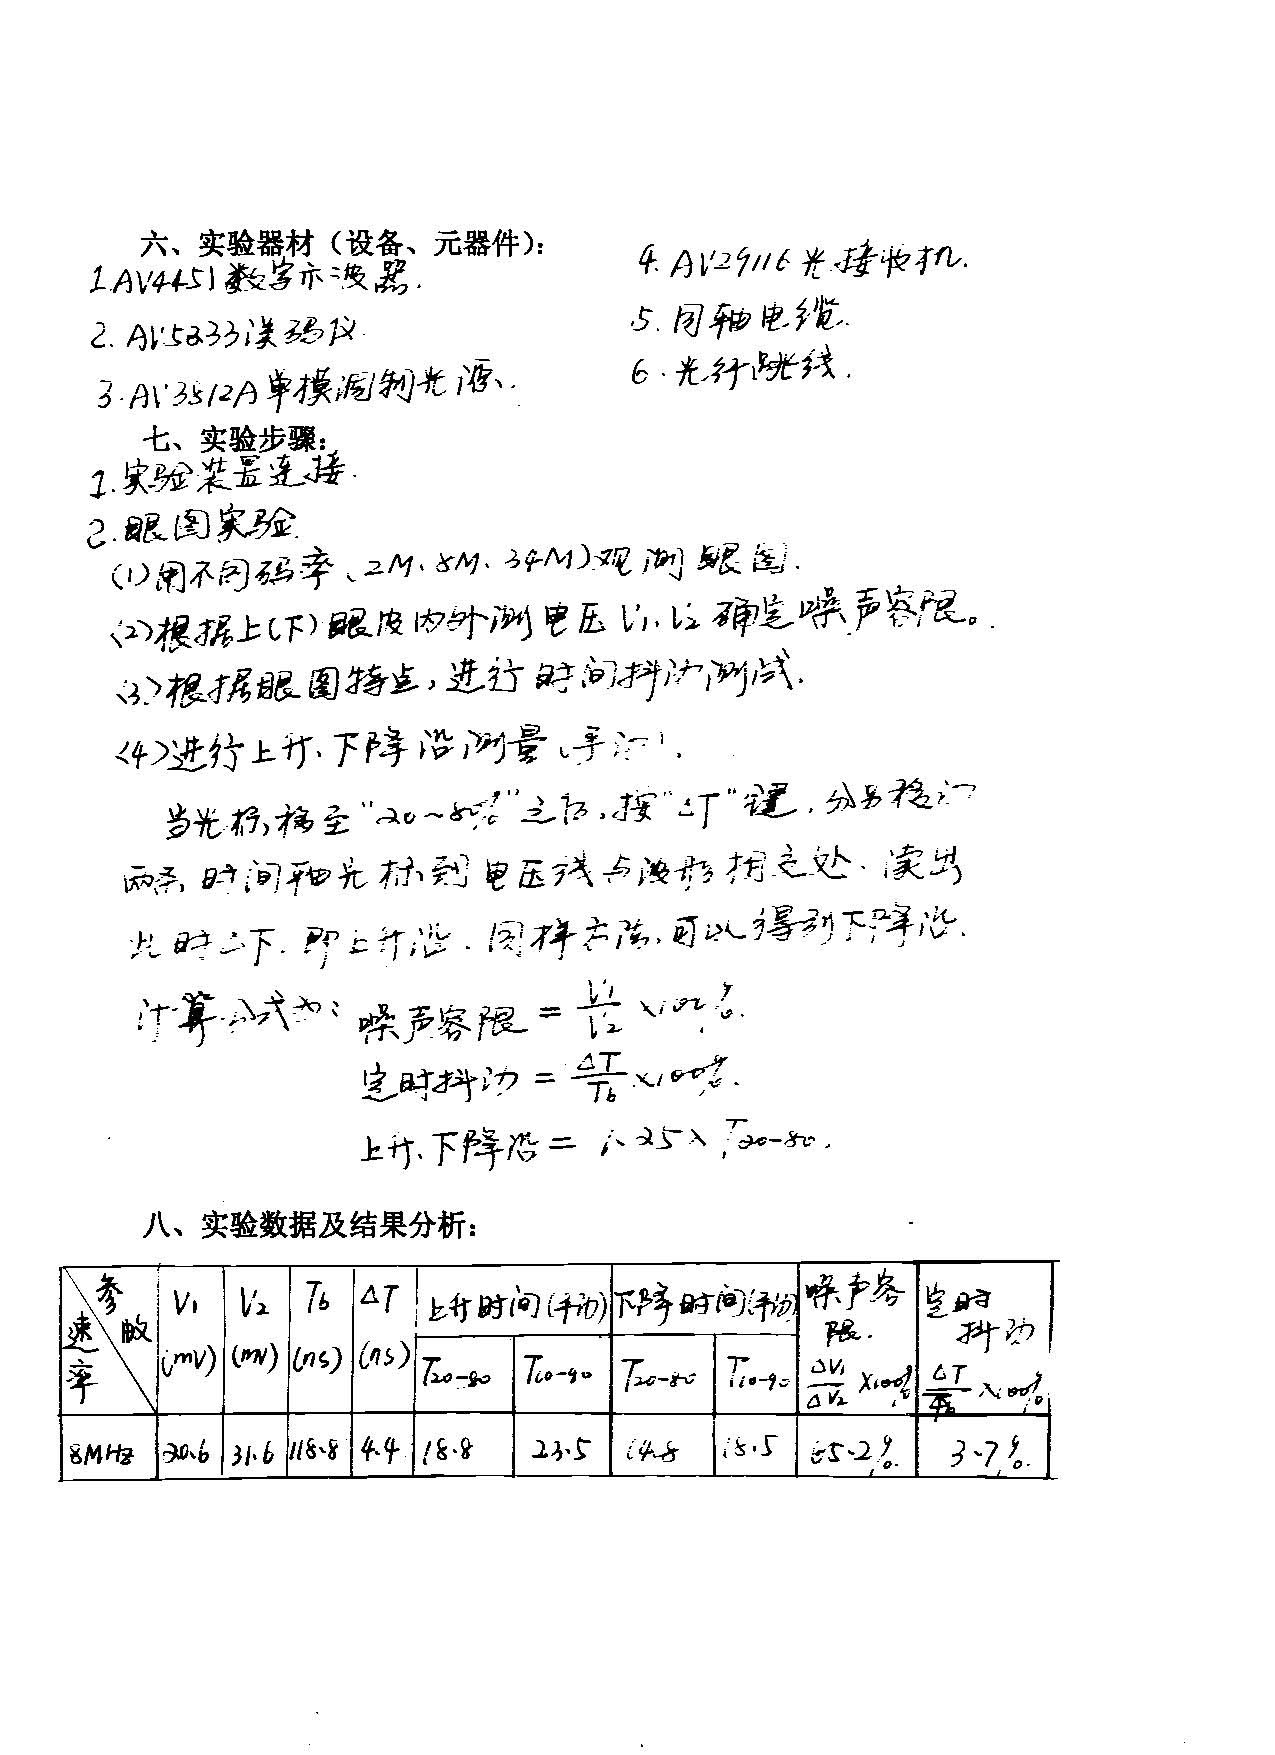 六、实验器材（设备、元器件）：
1.AV4451数字示波器.
2. AV5233误码仪.
3.AV3812A单模调制光源.
4. AV29116光接收机.
5. 同轴电缆.
6. 光纤跳线.
七、实验步骤：
1.实验装置连接.
2.眼图实验.
(1)用不同码率、2M、8M、34M)观测眼图.
(2)根据上(下)眼皮内外测电压V1、V2确定噪声容限。
(3)根据眼图特点，进行时间抖动测试.
(4)进行上升、下降沿测量(手动).
当光标移至“20~80%”之后,按“△T”键,分别移动
两条时间轴光标到电压线与波形相交处、读出
此时△T.即上升沿.同样方法,可以得到下降沿.
计算公式为：噪声容限 = V1/V2 ×100%.
定时抖动 = △T/Tb ×100%.
上升、下降沿 = 1.25× T20-80.
八、实验数据及结果分析：
参数 速率 V1 (mV) V2 (mV) Tb (ns) △T (ns) 上升时间(手动) 下降时间(手动) 噪声容限. △V1/△V2 ×100% 定时抖动 △T/Tb ×100%
T20-80 T10-90 T20-80 T10-90
8MHz 20.6 31.6 118.8 4.4 18.8 23.5 14.8 18.5 65.2% 3.7%